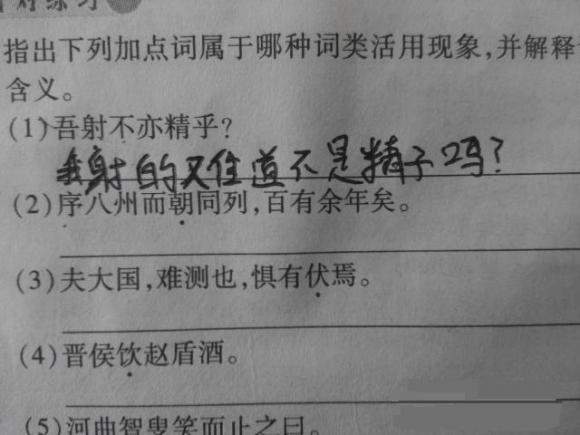 对练习
指出下列加点词属于哪种词类活用现象,并解释
含义。
(1)吾射不亦精乎?
我射的又住道不是精子吗?
(2)序八州而朝同列,百有余年矣。
(3)夫大国,难测也,惧有伏焉。
(4)晋侯饮赵盾酒。
(5)河曲智叟笑而止之曰。